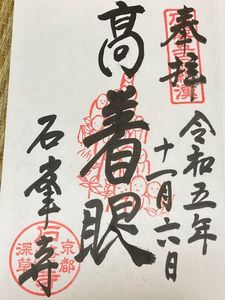 奉拝
令和五年
十一月六日
髙着眼
石峯寺
京都
深草